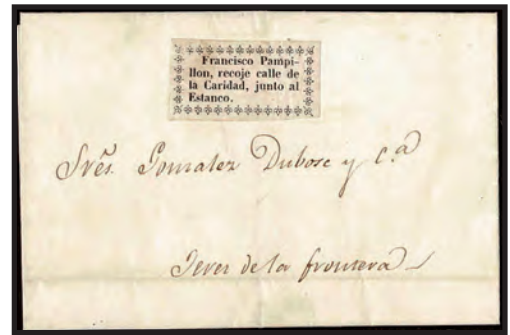 Francisco Pampi-
llon, recoje calle de
la Caridad, junto al
Estanco.
Sres. Gonzalez Dubosc y C.a
Jerez de la frontera